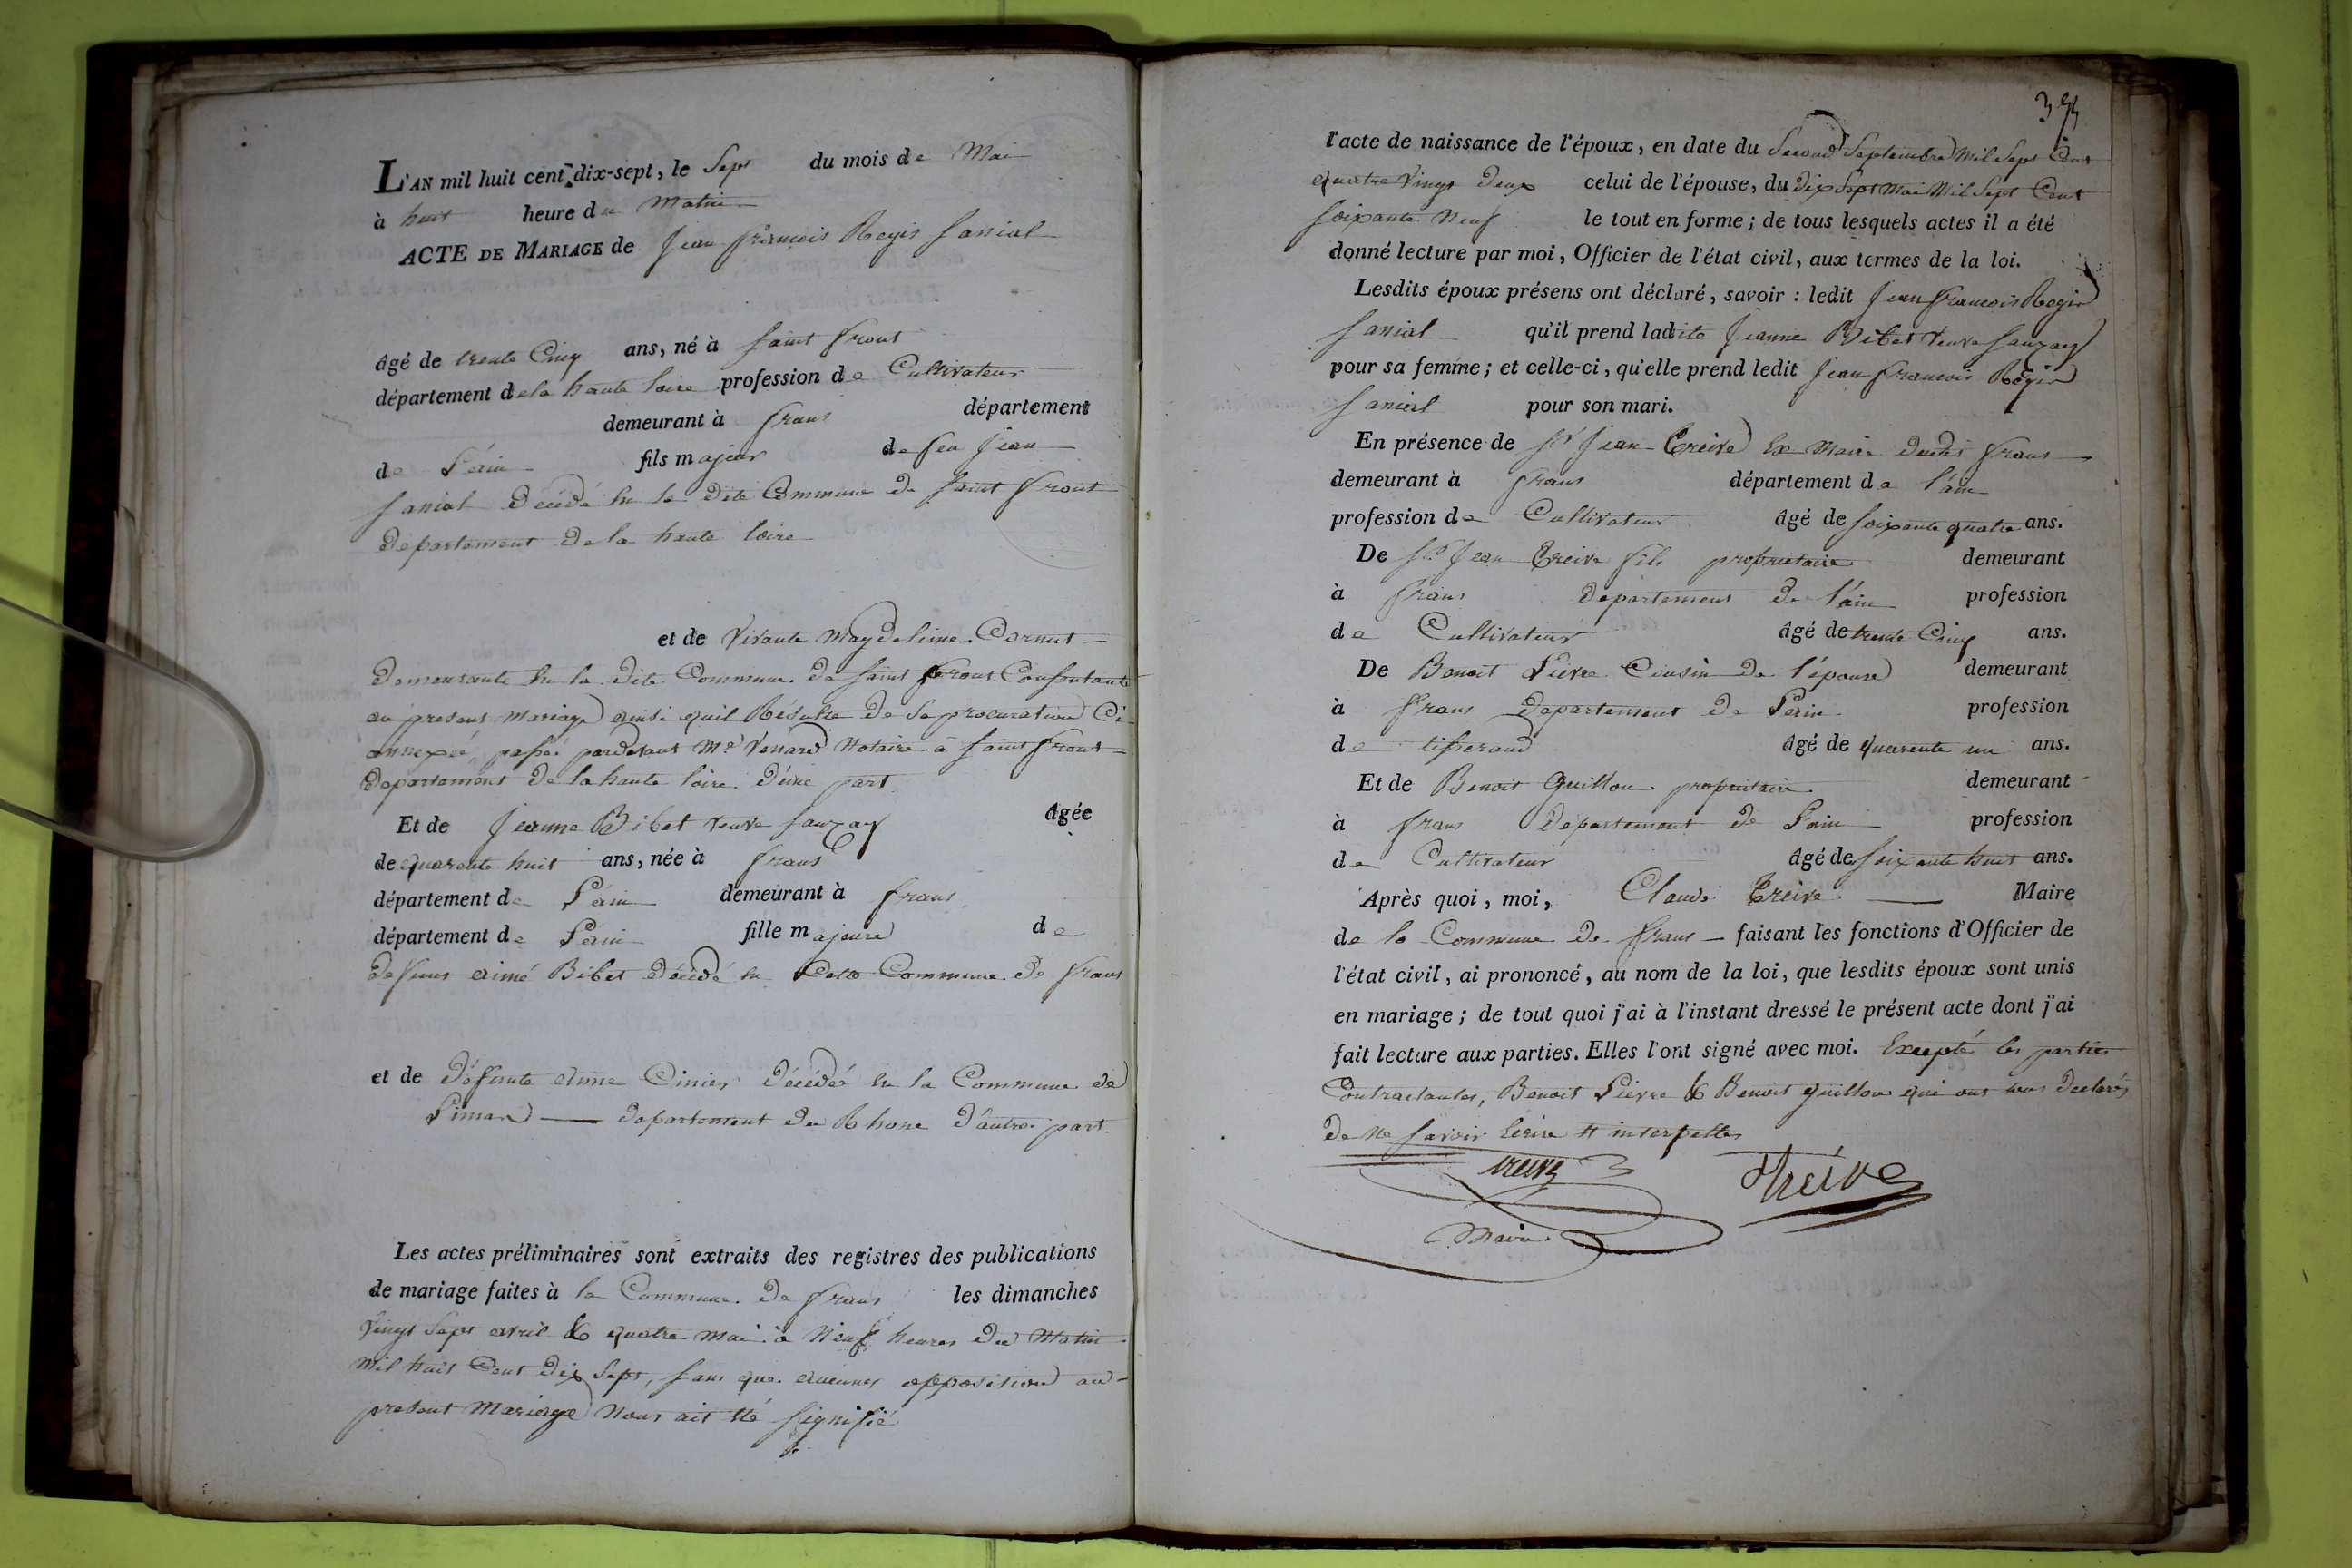 L'AN mil huit cent dix-sept, le Sept du mois de Mai
à huit heure du Matin
ACTE DE MARIAGE de Jean françois Regis Sanial
âgé de trente Cinq ans, né à Saint front
département dela haute loire profession de Cultivateur
demeurant à frans département
de l'ain fils majeur de feu Jean
Sanial Décédé En la dite Commune de Saint front
département de la haute loire
et de vivante Magdeleine Cornut
demeurante En la dite Commune de Saint front Consentante
au présent mariage ainsi quil Résulte de Sa procuration Ci
annexée, passé pardevant Me Venard Notaire à Saint front
Département de la haute loire d'une part
Et de Jeanne Bibet veuve Sauzay âgée
de quarente huit ans, née à frans
département de l'ain demeurant à frans
département de l'ain fille majeure de
defunt aimé Bibet Décédé En Cette Commune de frans
et de défunte anne Cinier Décédée En la Commune de
Limas département du Rhone d'autre part.
Les actes préliminaires sont extraits des registres des publications
de mariage faites à la Commune de frans les dimanches
vingt Sept avril & quatre mai à Neuf heures du Matin
Mil huit Cent dix Sept, Sans que aucunes opposition au
present Mariage Nous ait été Signifié
l'acte de naissance de l'époux, en date du Second Septembre Mil Sept Cent
quatre vingt deux celui de l'épouse, du dix Sept Mai Mil Sept Cent
Soixante Neuf le tout en forme; de tous lesquels actes il a été
donné lecture par moi, Officier de l'état civil, aux termes de la loi.
Lesdits époux présens ont déclaré, savoir: ledit Jean françois Regis
Sanial qu'il prend ladite Jeanne Bibet veuve Sauzay
pour sa femme; et celle-ci, qu'elle prend ledit Jean françois Regis
Sanial pour son mari.
En présence de Sr Jean Treive Ex Maire dudit frans
demeurant à frans département de l'ain
profession de Cultivateur âgé de Soixante quatre ans.
De Sr Jean Treive fils propriétaire demeurant
à frans département de l'ain profession
de Cultivateur âgé de trente Cinq ans.
De Benoit Lievre Cousin de l'épouse demeurant
à frans département de l'ain profession
de tisserand âgé de quarente un ans.
Et de Benoit Guillon propriétaire demeurant
à frans Département de l'ain profession
de Cultivateur âgé de Soixante huit ans.
Après quoi, moi, Claude Treive Maire
de la Commune de frans faisant les fonctions d'Officier de
l'état civil, ai prononcé, au nom de la loi, que lesdits époux sont unis
en mariage; de tout quoi j'ai à l'instant dressé le présent acte dont j'ai
fait lecture aux parties. Elles l'ont signé avec moi. Excepté les parties
Contractantes, Benoit Lievre & Benoit Guillon qui ont tous declarés
de Ne Savoir Ecrire et interpellés
treive treive
Maire